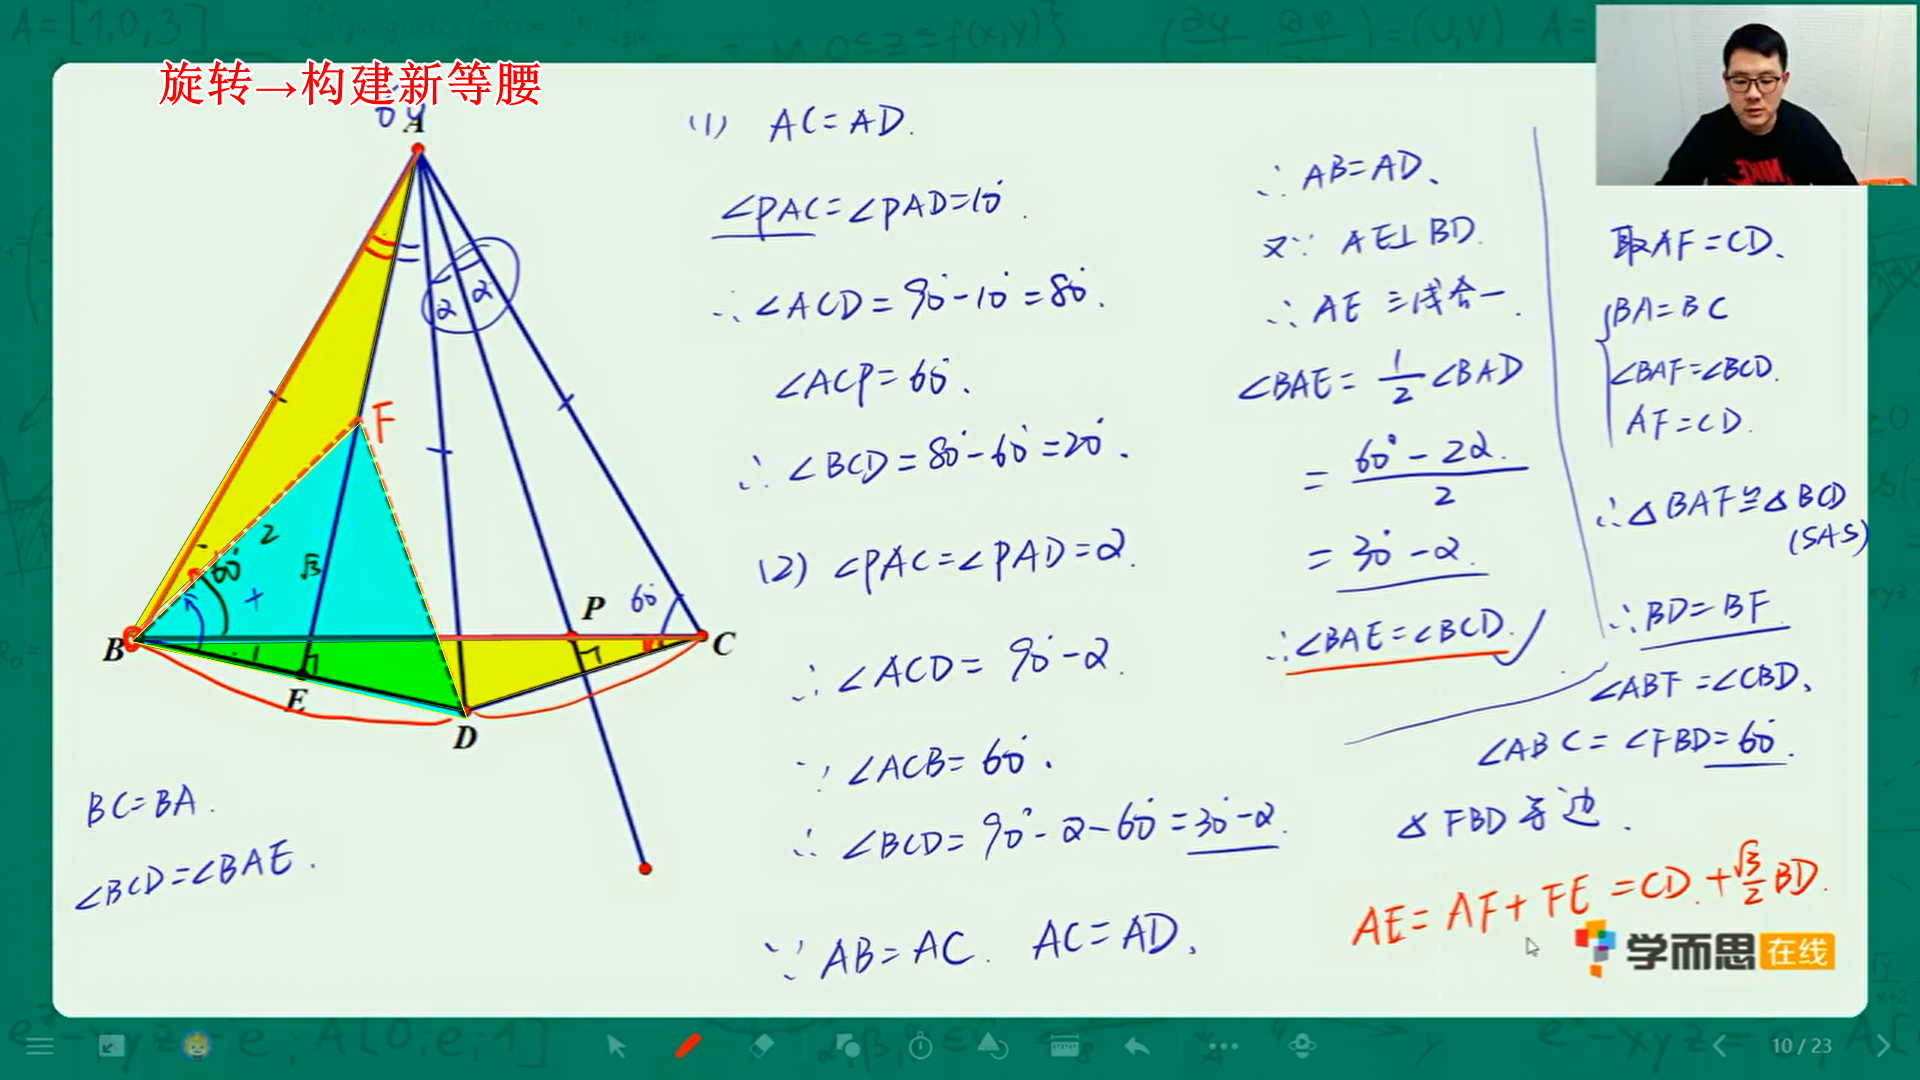 旋转→构建新等腰
A
F
2
60°
√3
1
B
E
D
P
60°
C
α
α
BC=BA.
∠BCD=∠BAE.
(1) AC=AD.
∠PAC=∠PAD=10°.
∴∠ACD=90°-10°=80°.
∠ACP=60°.
∴∠BCD=80°-60°=20°.
(2) ∠PAC=∠PAD=α.
∴∠ACD=90°-α.
∵∠ACB=60°.
∴∠BCD=90°-α-60°=30°-α.
∵AB=AC. AC=AD、
∴AB=AD、
又∵ AE⊥BD.
∴AE 三线合一.
∠BAE=1/2∠BAD
=(60°-2α)/2
=30°-α.
∴∠BAE=∠BCD.
取AF=CD、
BA=BC
∠BAF=∠BCD.
AF=CD.
∴△BAF≌△BCD
(SAS)
∴BD=BF.
∠ABF=∠CBD、
∠ABC=∠FBD=60°.
△FBD等边.
AE=AF+FE=CD+√3/2BD.
学而思在线
10 / 23